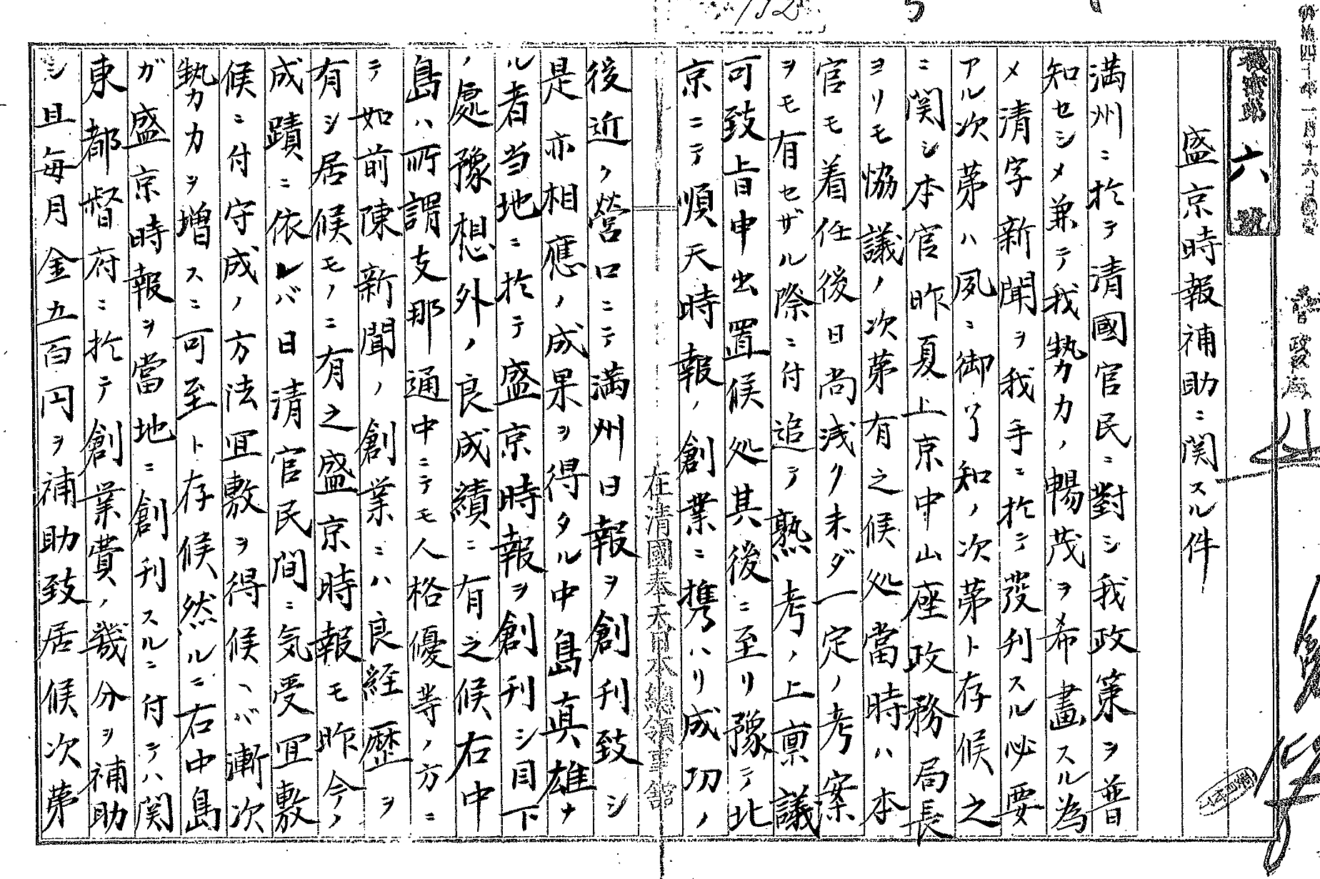 機密第六號
盛京時報補助ニ関スル件
満州ニ於テ清國官民ニ對シ我政策ヲ普
知セシメ兼テ我勢力ノ暢茂ヲ希畫スル為
メ清字新聞ヲ我手ニ於テ發刊スル必要
アル次第ハ夙ニ御了知ノ次第ト存候之
ニ関シ本官昨夏上京中山座政務局長
ヨリモ恊議ノ次第有之候処當時ハ本
官モ着任後日尚浅ク未ダ一定ノ考案
ヲモ有セザル際ニ付追テ熟考ノ上禀議
可致旨申出置候処其後ニ至リ豫テ北
京ニテ順天時報ノ創業ニ携ハリ成功ノ
在清國奉天日本總領事館
後近ク營口ニテ満州日報ヲ創刊致シ
是亦相應ノ成果ヲ得タル中島真雄ナ
ル者当地ニ於テ盛京時報ヲ創刊シ目下
ノ處豫想外ノ良成績ニ有之候右中
島ハ所謂支那通中ニテモ人格優等ノ方ニ
テ如前陳新聞ノ創業ニハ良経歴ヲ
有シ居候モノニ有之盛京時報モ昨今ノ
成蹟ニ依レバ日清官民間ニ気受宜敷
候ニ付守成ノ方法宜敷ヲ得候ヘバ漸次
勢力ヲ増スニ可至ト存候然ルニ右中島
ガ盛京時報ヲ當地ニ創刊スルニ付テハ関
東都督府ニ於テ創業費ノ幾分ヲ補助
シ且毎月金五百円ヲ補助致居候次第